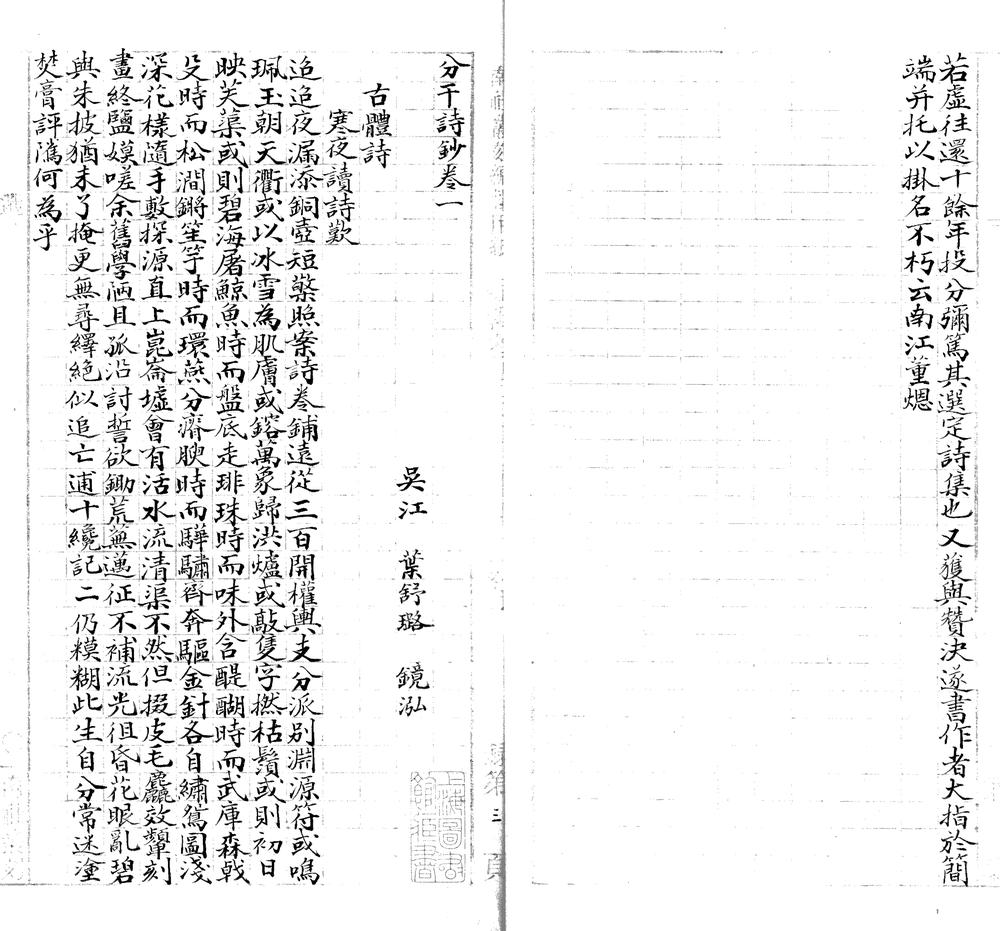 若虛往還十餘年投分彌篤其選定詩集也又獲與贊決遂書作者大指於簡
端并托以掛名不朽云南江董熜
分干詩鈔卷一
吳江 葉舒璐 鏡泓
古體詩
寒夜讀詩歎
迢迢夜漏添銅壺短檠照案詩卷鋪遠從三百開權輿支分派別淵源符或鳴
珮玉朝天衢或以冰雪為肌膚或鎔萬象歸洪爐或敲隻字撚枯鬚或則初日
映芙蕖或則碧海屠鯨魚時而盤底走琲珠時而味外含醍醐時而武庫森戟
殳時而松澗鏘笙竽時而環燕分瘠腴時而驊驌齊奔驅金針各自繡鴛圖淺
深花樣隨手敷探源直上崑崙墟會有活水流清渠不然但掇皮毛麤效顰刻
畫終鹽嫫嗟余舊學陋且孤沿討誓欲鋤荒蕪邁征不補流光徂昏花眼亂碧
與朱披猶未了掩更無尋繹絕似追亡逋十纔記二仍糢糊此生自分常迷塗
焚膏評隲何為乎
上海圖書
館藏書